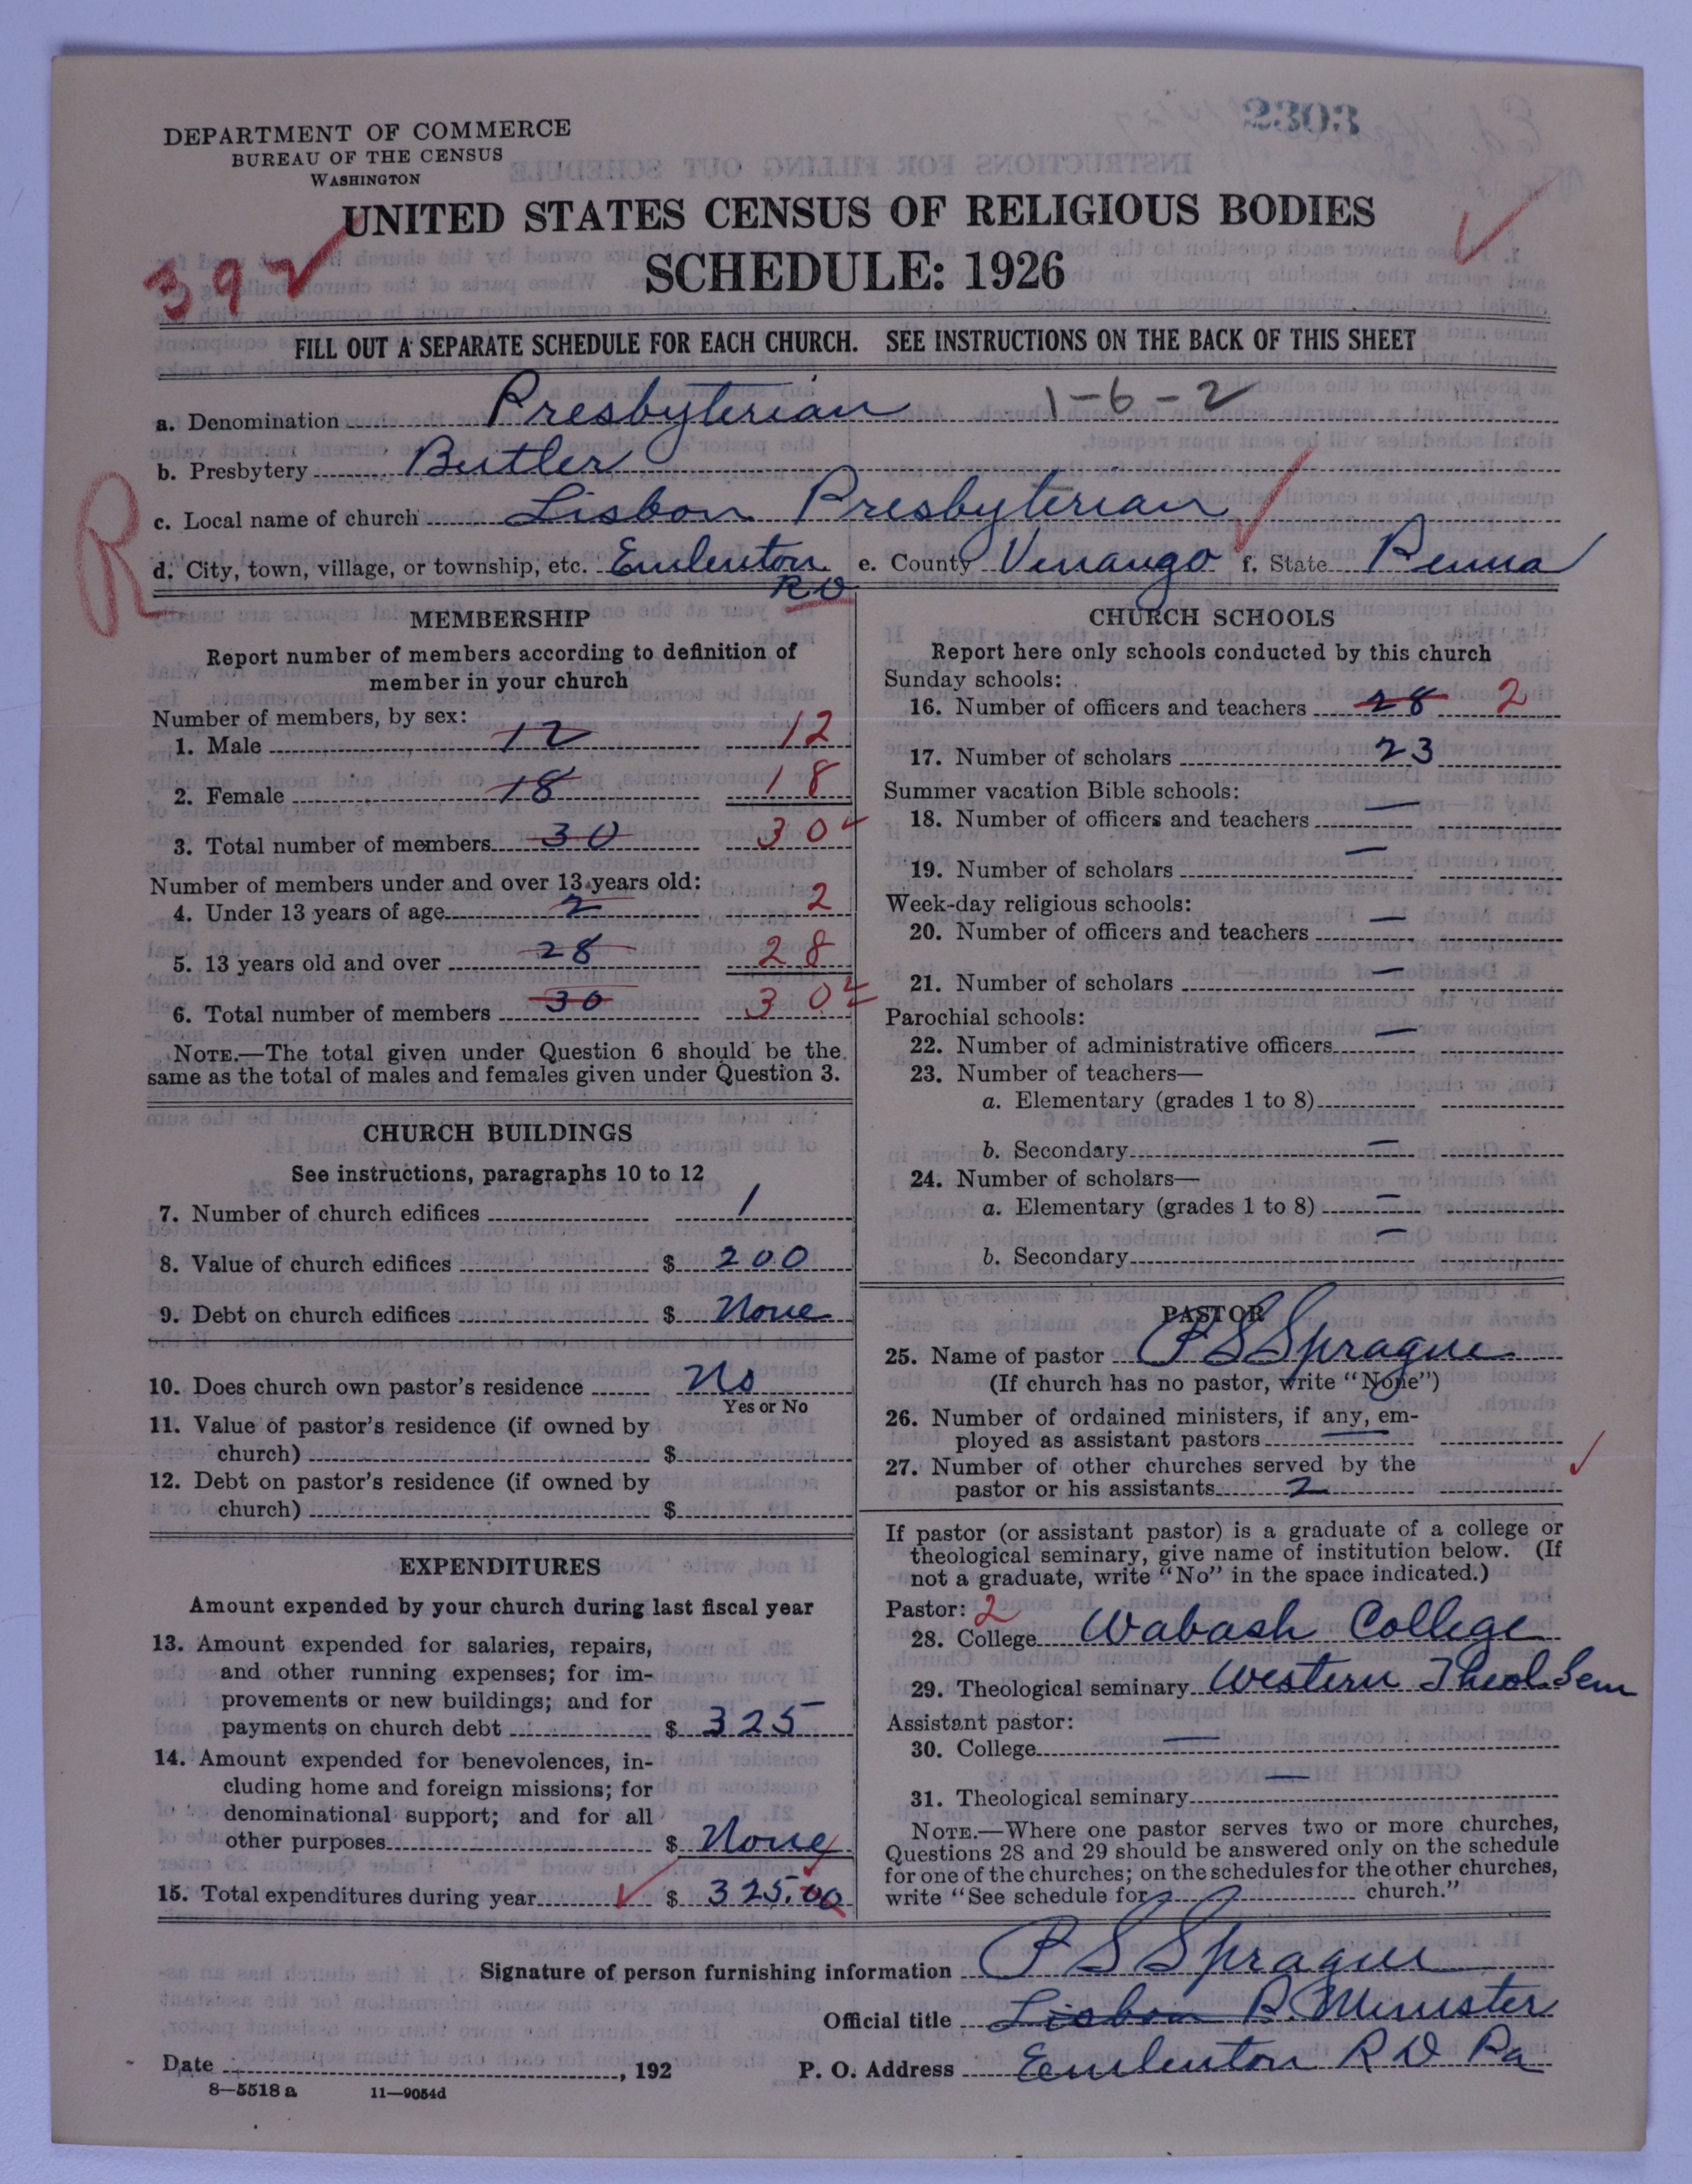 2303
DEPARTMENT OF COMMERCE
BUREAU OF THE CENSUS
WASHINGTON
UNITED STATES CENSUS OF RELIGIOUS BODIES
SCHEDULE: 1926
392
FILL OUT A SEPARATE SCHEDULE FOR EACH CHURCH. SEE INSTRUCTIONS ON THE BACK OF THIS SHEET
a. Denomination Presbyterian 1-6-2
b. Presbytery Butler
c. Local name of church Lisbon Presbyterian
R
d. City, town, village, or township, etc. Emlenton RD e. County Venango f. State Penna
MEMBERSHIP
Report number of members according to definition of
member in your church
Number of members, by sex:
1. Male 12 12
2. Female 18 18
3. Total number of members 30 30
Number of members under and over 13 years old:
4. Under 13 years of age 2 2
5. 13 years old and over 28 28
6. Total number of members 30 30
NOTE.—The total given under Question 6 should be the
same as the total of males and females given under Question 3.
CHURCH BUILDINGS
See instructions, paragraphs 10 to 12
7. Number of church edifices 1
8. Value of church edifices $ 200
9. Debt on church edifices $ None
10. Does church own pastor's residence No
Yes or No
11. Value of pastor's residence (if owned by
church) $
12. Debt on pastor's residence (if owned by
church) $
EXPENDITURES
Amount expended by your church during last fiscal year
13. Amount expended for salaries, repairs,
and other running expenses; for im-
provements or new buildings; and for
payments on church debt $ 325
14. Amount expended for benevolences, in-
cluding home and foreign missions; for
denominational support; and for all
other purposes $ None
15. Total expenditures during year $ 325.00
CHURCH SCHOOLS
Report here only schools conducted by this church
Sunday schools:
16. Number of officers and teachers 28 2
17. Number of scholars 23
Summer vacation Bible schools:
18. Number of officers and teachers —
19. Number of scholars —
Week-day religious schools:
20. Number of officers and teachers —
21. Number of scholars —
Parochial schools:
22. Number of administrative officers —
23. Number of teachers—
a. Elementary (grades 1 to 8)
b. Secondary —
24. Number of scholars—
a. Elementary (grades 1 to 8) —
b. Secondary —
PASTOR
25. Name of pastor P S Sprague
(If church has no pastor, write "None")
26. Number of ordained ministers, if any, em-
ployed as assistant pastors —
27. Number of other churches served by the
pastor or his assistants 2
If pastor (or assistant pastor) is a graduate of a college or
theological seminary, give name of institution below. (If
not a graduate, write "No" in the space indicated.)
Pastor: 2
28. College Wabash College
29. Theological seminary Western Theol. Sem
Assistant pastor:
30. College —
31. Theological seminary —
NOTE.—Where one pastor serves two or more churches,
Questions 28 and 29 should be answered only on the schedule
for one of the churches; on the schedules for the other churches,
write "See schedule for church."
Signature of person furnishing information P S Sprague
Official title Lisbon P. Minister
Date , 192 P. O. Address Emlenton R D Pa
8—5518 a 11—9054d